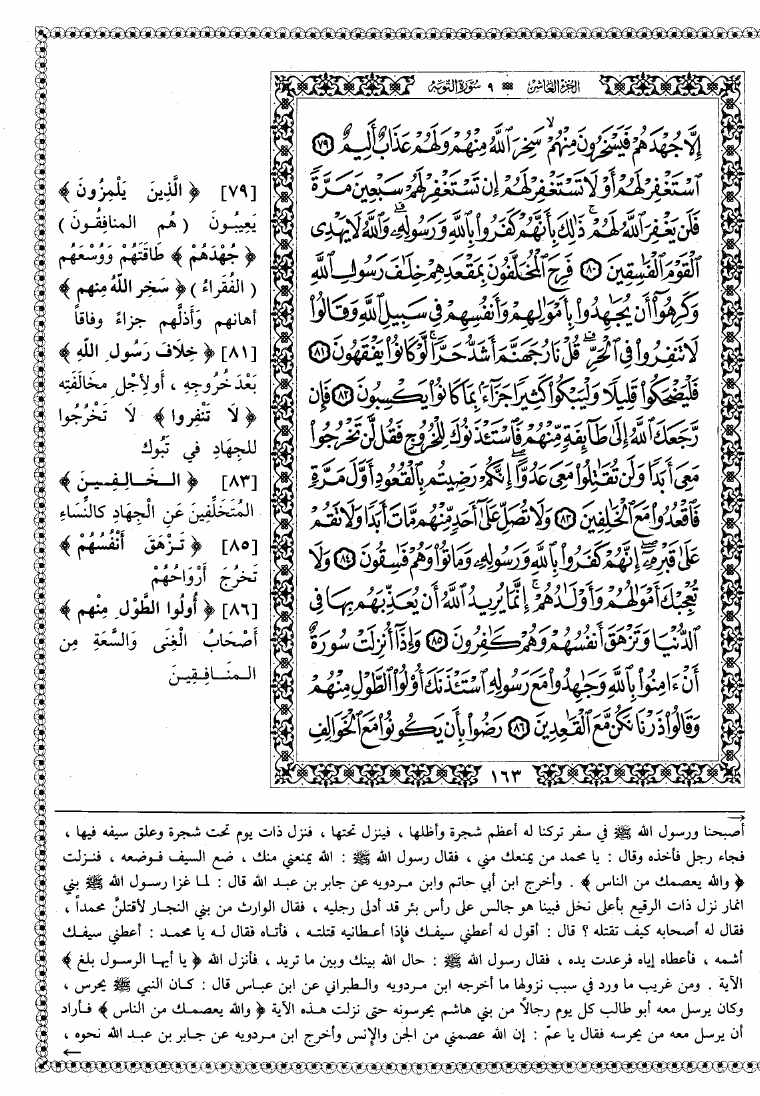 الجزء العاشر ۞ ٩ سورة التوبة
إِلَّا جُهْدَهُمْ فَيَسْخَرُونَ مِنْهُمْ سَخِرَ ٱللَّهُ مِنْهُمْ وَلَهُمْ عَذَابٌ أَلِيمٌ ٧٩
ٱسْتَغْفِرْ لَهُمْ أَوْ لَا تَسْتَغْفِرْ لَهُمْ إِن تَسْتَغْفِرْ لَهُمْ سَبْعِينَ مَرَّةً
فَلَن يَغْفِرَ ٱللَّهُ لَهُمْ ۚ ذَٰلِكَ بِأَنَّهُمْ كَفَرُوا۟ بِٱللَّهِ وَرَسُولِهِۦ ۗ وَٱللَّهُ لَا يَهْدِى
ٱلْقَوْمَ ٱلْفَـٰسِقِينَ ٨٠ فَرِحَ ٱلْمُخَلَّفُونَ بِمَقْعَدِهِمْ خِلَـٰفَ رَسُولِ ٱللَّهِ
وَكَرِهُوٓا۟ أَن يُجَـٰهِدُوا۟ بِأَمْوَٰلِهِمْ وَأَنفُسِهِمْ فِى سَبِيلِ ٱللَّهِ وَقَالُوا۟
لَا تَنفِرُوا۟ فِى ٱلْحَرِّ ۗ قُلْ نَارُ جَهَنَّمَ أَشَدُّ حَرًّا ۚ لَّوْ كَانُوا۟ يَفْقَهُونَ ٨١
فَلْيَضْحَكُوا۟ قَلِيلًا وَلْيَبْكُوا۟ كَثِيرًا جَزَآءًۢ بِمَا كَانُوا۟ يَكْسِبُونَ ٨٢ فَإِن
رَّجَعَكَ ٱللَّهُ إِلَىٰ طَآئِفَةٍ مِّنْهُمْ فَٱسْتَـْٔذَنُوكَ لِلْخُرُوجِ فَقُل لَّن تَخْرُجُوا۟
مَعِىَ أَبَدًا وَلَن تُقَـٰتِلُوا۟ مَعِىَ عَدُوًّا ۖ إِنَّكُمْ رَضِيتُم بِٱلْقُعُودِ أَوَّلَ مَرَّةٍ
فَٱقْعُدُوا۟ مَعَ ٱلْخَـٰلِفِينَ ٨٣ وَلَا تُصَلِّ عَلَىٰٓ أَحَدٍ مِّنْهُم مَّاتَ أَبَدًا وَلَا تَقُمْ
عَلَىٰ قَبْرِهِۦٓ ۖ إِنَّهُمْ كَفَرُوا۟ بِٱللَّهِ وَرَسُولِهِۦ وَمَاتُوا۟ وَهُمْ فَـٰسِقُونَ ٨٤ وَلَا
تُعْجِبْكَ أَمْوَٰلُهُمْ وَأَوْلَـٰدُهُمْ ۚ إِنَّمَا يُرِيدُ ٱللَّهُ أَن يُعَذِّبَهُم بِهَا فِى
ٱلدُّنْيَا وَتَزْهَقَ أَنفُسُهُمْ وَهُمْ كَـٰفِرُونَ ٨٥ وَإِذَآ أُنزِلَتْ سُورَةٌ
أَنْ ءَامِنُوا۟ بِٱللَّهِ وَجَـٰهِدُوا۟ مَعَ رَسُولِهِ ٱسْتَـْٔذَنَكَ أُو۟لُوا۟ ٱلطَّوْلِ مِنْهُمْ
وَقَالُوا۟ ذَرْنَا نَكُن مَّعَ ٱلْقَـٰعِدِينَ ٨٦ رَضُوا۟ بِأَن يَكُونُوا۟ مَعَ ٱلْخَوَالِفِ
١٦٣
[٧٩] ﴿ الَّذِينَ يَلْمِزُونَ ﴾
يَعِيبُونَ ( هُم المنافِقُون )
﴿ جُهْدَهُمْ ﴾ طَاقَتَهُمْ وَوُسْعَهُم
( الفُقراءُ ) ﴿ سَخِر اللّهُ منهم ﴾
أهانهم وَأَذلَّهم جزاءً وفاقاً
[٨١] ﴿ خِلافَ رَسُولِ اللّهِ ﴾
بَعْدَ خُروجِهِ ، أو لِأَجْلِ مخالَفَتِهِ
﴿ لَا تَنْفِروا ﴾ لَا تَخْرُجُوا
للجِهَادِ في تَبُوك
[٨٣] ﴿ الخَالِفِينَ ﴾
المُتَخَلِّفِينَ عَنِ الْجِهَادِ كالنِّسَاءِ
[٨٥] ﴿ تَزْهَقَ أَنْفُسُهُمْ ﴾
تَخرُجَ أَرْوَاحُهُمْ
[٨٦] ﴿ أُولُوا الطَّوْلِ مِنْهم ﴾
أَصْحَابُ الْغِنَى وَالسَّعَةِ مِن
المنَافِقِينَ
أصبحنا ورسول الله ﷺ في سفر تركنا له أعظم شجرة وأظلها ، فينزل تحتها ، فنزل ذات يوم تحت شجرة وعلق سيفه فيها ،
فجاء رجل فأخذه وقال : يا محمد من يمنعك مني ، فقال رسول الله ﷺ : الله يمنعني منك ، ضع السيف فوضعه ، فنزلت
﴿ والله يعصمك من الناس ﴾ . وأخرج ابن أبي حاتم وابن مردويه عن جابر بن عبد الله قال : لما غزا رسول الله ﷺ بني
انمار نزل ذات الرقيع بأعلى نخل فبينا هو جالس على رأس بئر قد أدلى رجليه ، فقال الوارث من بني النجار لأقتلنّ محمداً ،
فقال له أصحابه كيف تقتله ؟ قال : أقول له أعطني سيفك فإذا أعطانيه قتلته ، فأتاه فقال له يا محمد : أعطني سيفك
أشمه ، فأعطاه إياه فرعدت يده ، فقال رسول الله ﷺ : حال الله بينك وبين ما تريد ، فأنزل الله ﴿ يا أيها الرسول بلغ ﴾
الآية . ومن غريب ما ورد في سبب نزولها ما أخرجه ابن مردويه والطبراني عن ابن عباس قال : كان النبي ﷺ يحرس ،
وكان يرسل معه أبو طالب كل يوم رجالاً من بني هاشم يحرسونه حتى نزلت هذه الآية ﴿ والله يعصمك من الناس ﴾ فأراد
أن يرسل معه من يحرسه فقال يا عمّ : إن الله عصمني من الجن والإنس وأخرج ابن مردويه عن جابر بن عبد الله نحوه ،